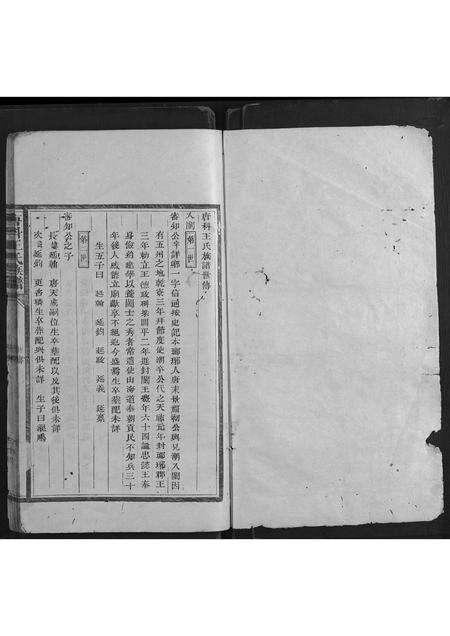 唐科王氏族譜世傳
入閩第一世
審知公字詳卿一字信通按史記本瑯琊人唐末景福初公與兄潮入閩因
有五州之地乾寧三年拜節度使潮卒公代之天祐元年封瑯琊郡王
三年勅立王德政碑梁開平二年進封閩王薨年六十四諡忠懿王奉
身儉約建學以養閩士之秀者常遣使由海道奏朝貢民不知兵三十
年後人咸德立廟獻享不絕迄今盛焉生卒葬配未詳
生五子曰 延翰 延鈞 延政 延義 延嘉
第二世
審知公之子
長曰延翰 唐天成嗣位生卒葬配以及其後俱未詳
次曰延鈞 更名璘生卒葬配與俱未詳 生子曰繼鵬